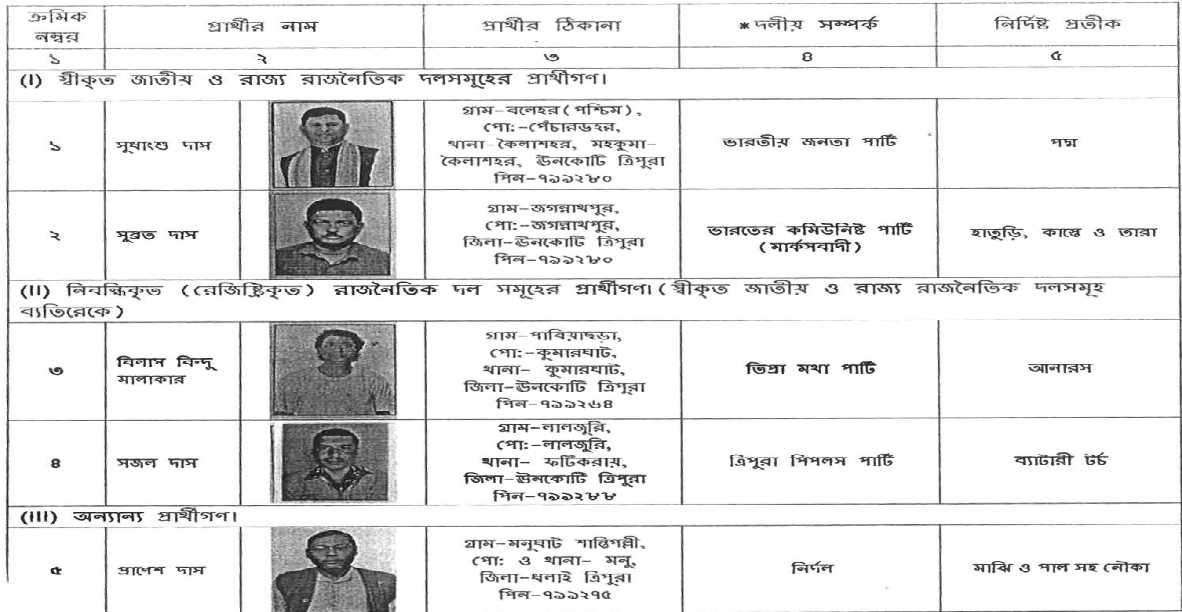 ক্রমিক নম্বর প্রার্থীর নাম প্রার্থীর ঠিকানা *দলীয় সম্পর্ক নির্দিষ্ট প্রতীক
১ ২ ৩ ৪ ৫
(I) স্বীকৃত জাতীয় ও রাজ্য রাজনৈতিক দলসমূহের প্রার্থীগণ।
১ সুধাংশু দাস
গ্রাম-বলেহর(পশ্চিম),
পো:-পেঁচারডহর,
থানা-কৈলাশহর, মহকুমা-
কৈলাশহর, ঊনকোটি ত্রিপুরা
পিন-৭৯৯২৮০
ভারতীয় জনতা পার্টি
পদ্ম
২ সুব্রত দাস
গ্রাম-জগন্নাথপুর,
পো:-জগন্নাথপুর,
জিলা-ঊনকোটি ত্রিপুরা
পিন-৭৯৯২৮০
ভারতের কমিউনিষ্ট পার্টি
(মার্কসবাদী)
হাতুড়ি, কাস্তে ও তারা
(II) নিবন্ধিকৃত ((রেজিষ্ট্রিকৃত) রাজনৈতিক দল সমূহের প্রার্থীগণ।(স্বীকৃত জাতীয় ও রাজ্য রাজনৈতিক দলসমূহ
ব্যতিরেকে)
৩ বিলাস বিন্দু
মালাকার
গ্রাম-পাবিয়াছড়া,
পো:-কুমারঘাট,
থানা- কুমারঘাট,
জিলা-ঊনকোটি ত্রিপুরা
পিন-৭৯৯২৬৪
তিপ্রা মথা পার্টি
আনারস
৪ সজল দাস
গ্রাম-লালজুরি,
পো:-লালজুরি,
থানা- ফটিকরায়,
জিলা-ঊনকোটি ত্রিপুরা
পিন-৭৯৯২৮৮
ত্রিপুরা পিপলস পার্টি
ব্যাটারী টর্চ
(III) অন্যান্য প্রার্থীগণ।
৫ প্রাণেশ দাস
গ্রাম-মনুঘাট শান্তিপল্লী,
পো: ও থানা- মনু,
জিলা-ধলাই ত্রিপুরা
পিন-৭৯৯২৭৫
নির্দল
মাঝি ও পাল সহ নৌকা